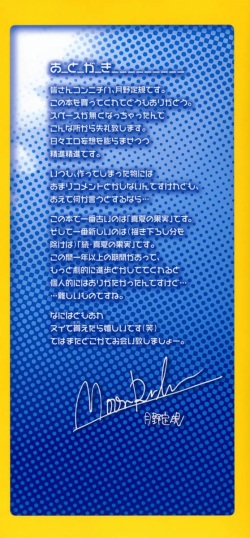 あ_と_が_き_________
皆さんコンニチハ、月野定規です。
この本を買ってくれてどうもありがとう。
スペースが無くなっちゃったんで
こんな所から失礼致します。
日々エロ妄想を膨らませつつ
精進精進です。
いつも、作ってしまった物には
あまりコメントとかしないんですけれども、
あえて何か言うとするなら…
この本で一番古いのは「真夏の果実」です。
そして一番新しいのは(描き下ろし分を
除けば)「続・真夏の果実」です。
この間一年以上の期間があって、
もっと劇的に進歩とかしててくれると
個人的にはありがたかったんですけど…
…難しいものですね。
なにはともあれ
ヌイて貰えたら嬉しいです(笑)
ではまたどこかでお会い致しましょー。
月野定規